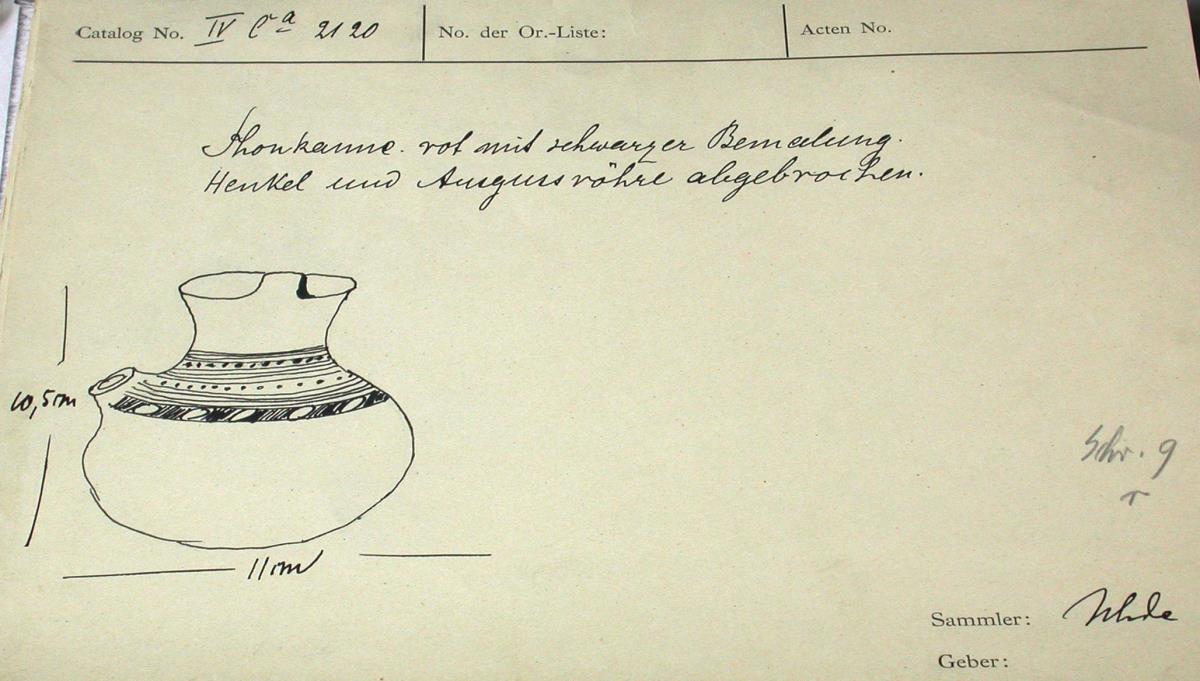 Catalog No. IV Ca 2120 No. der Or.-Liste: Acten No.
Thonkanne. rot mit schwarzer Bemalung.
Henkel und Ausgussröhre abgebrochen.
10,5cm
11cm
Schr. 9
Sammler: Uhde
Geber: